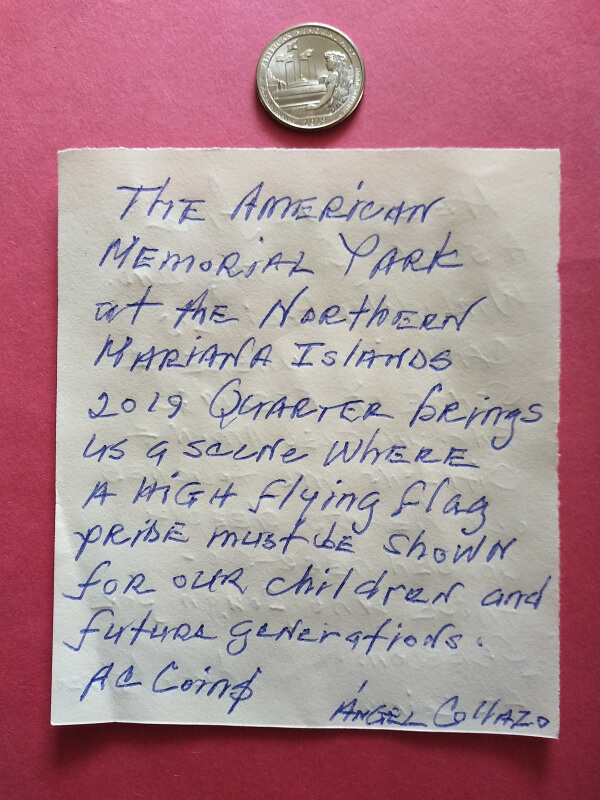 AMERICAN MEMORIAL PARK
2019
THE AMERICAN
MEMORIAL PARK
at the NORTHERN
MARIANA ISlANDS
2019 QUARTER brings
us a scene WHERE
A HiGH flying flag
PRIDE must be SHOWN
fOR OUR children and
future generations.
AC Coin$
ÁNGEL COllAZO